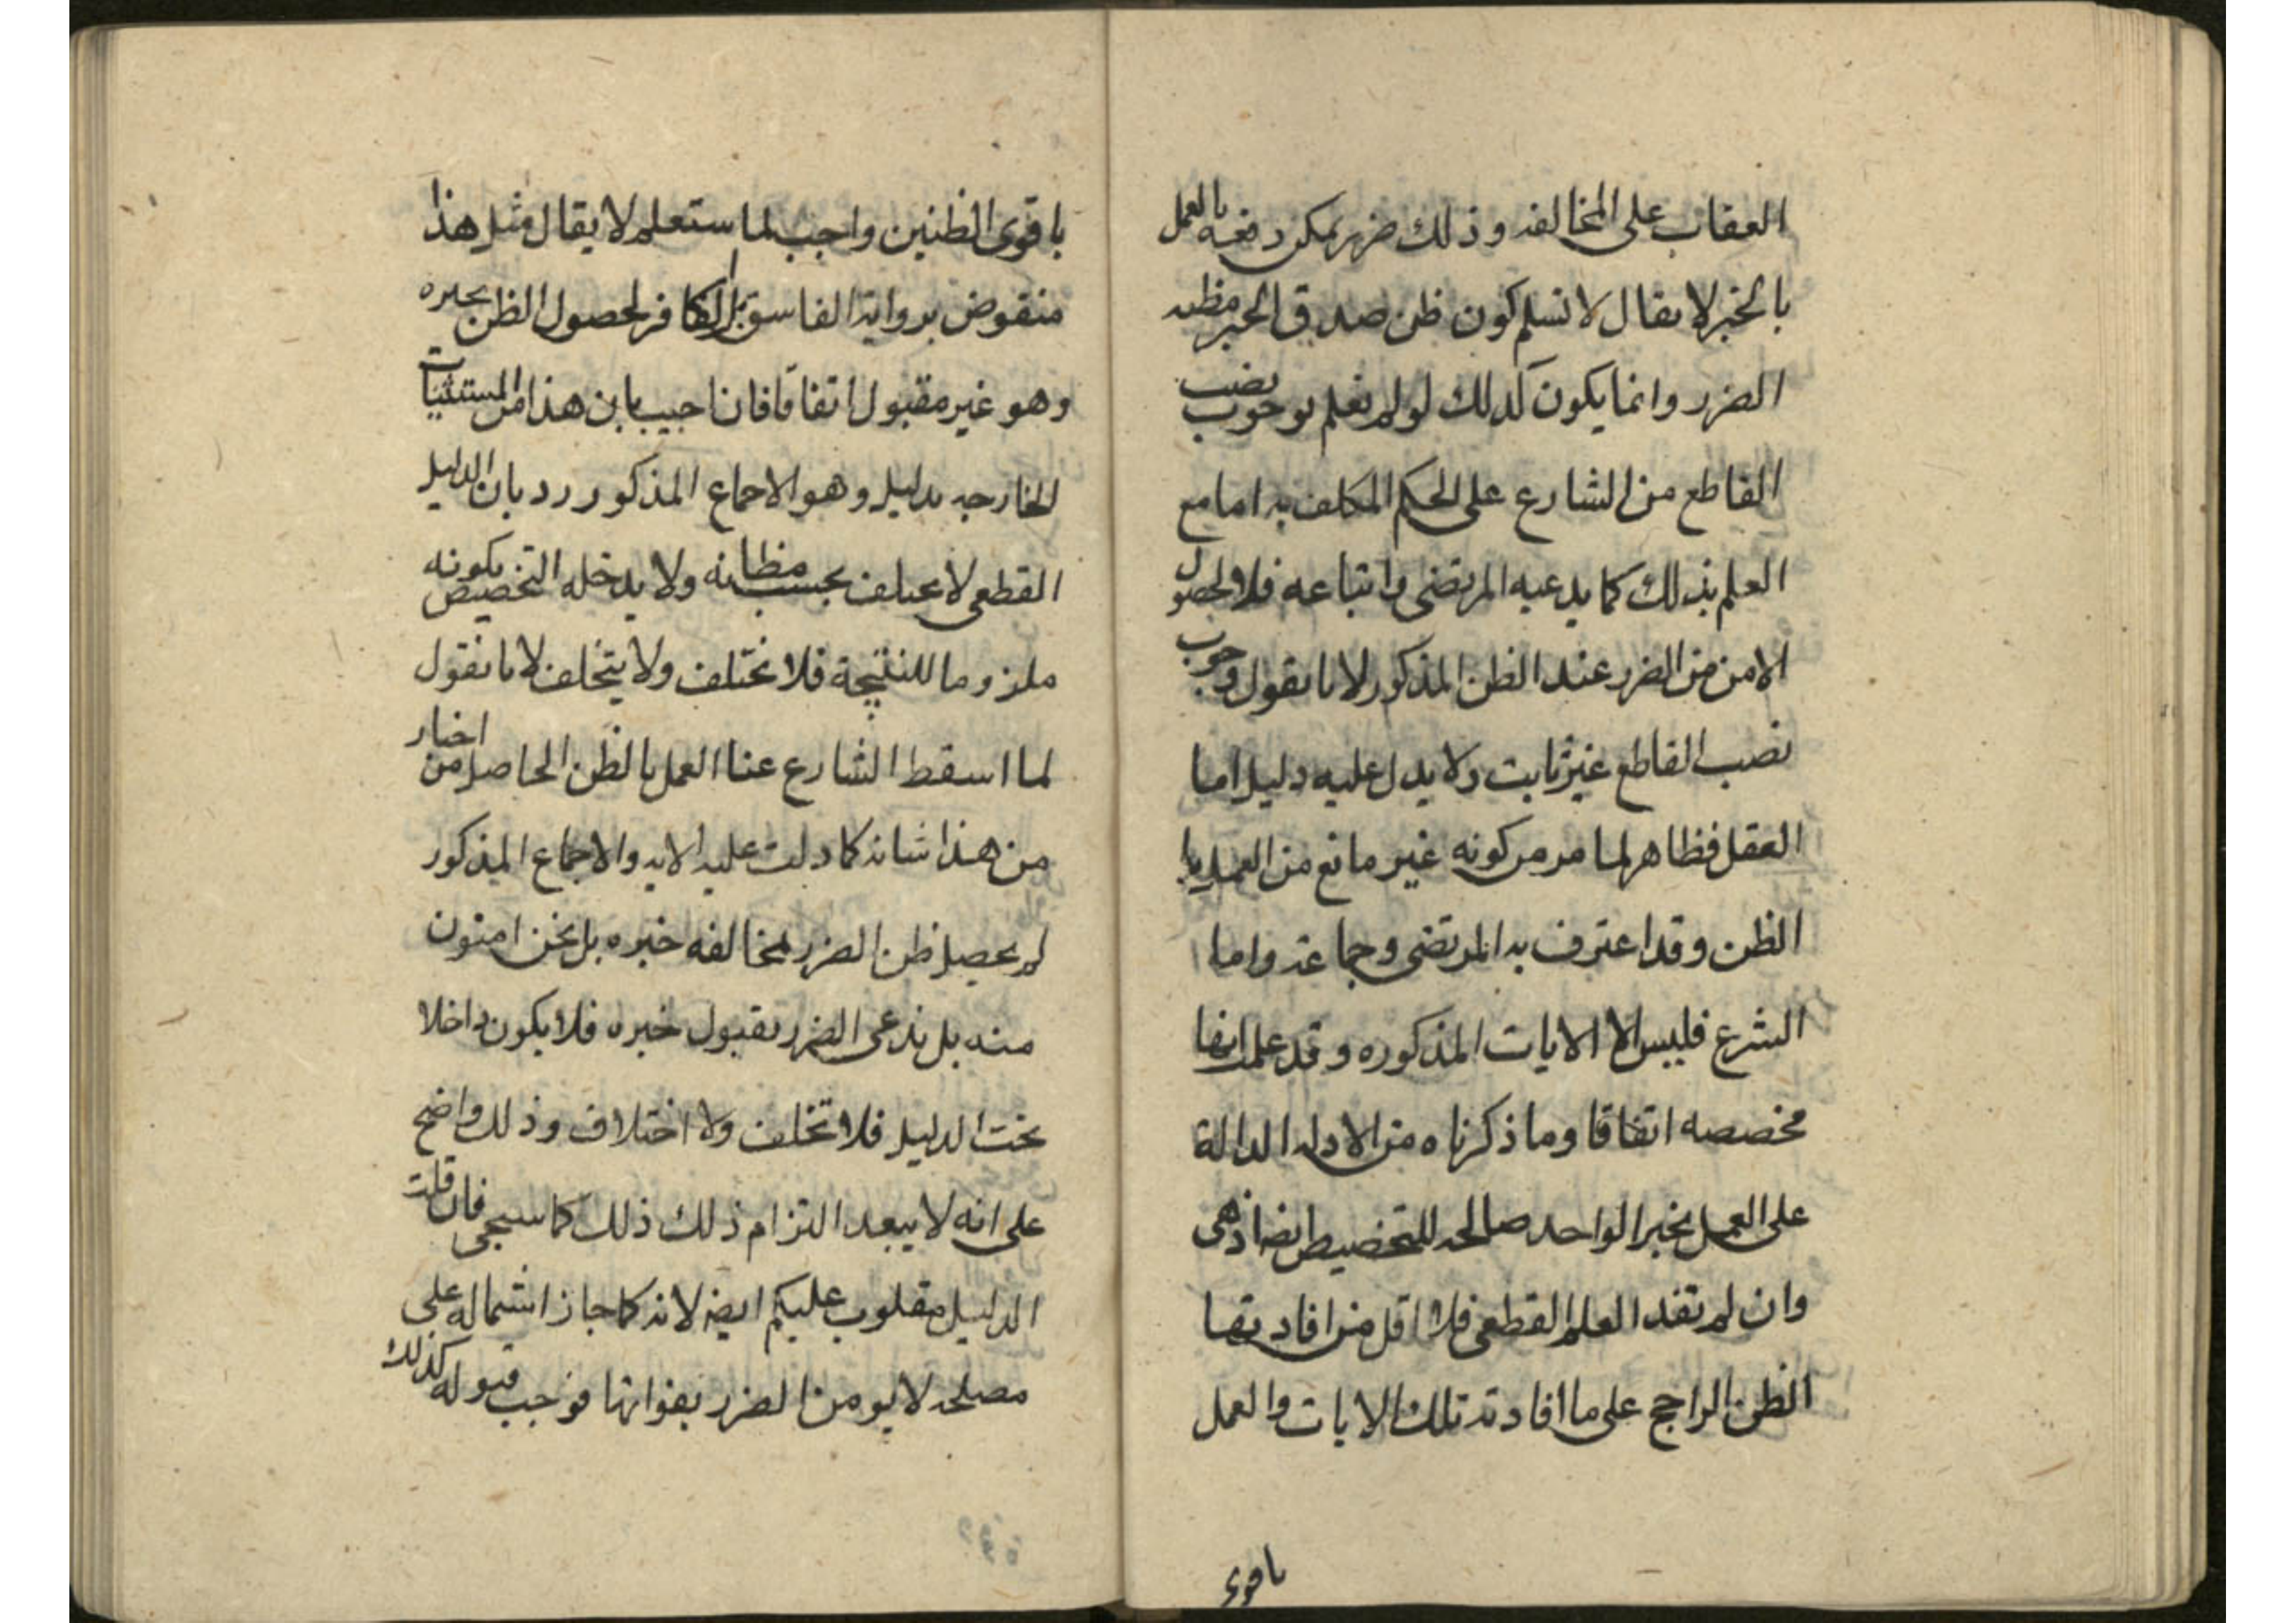 العقاب على المخالفه وذلك ضرر يمكن دفعه بالعمل
بالخبر لا يقال لا نسلم كون ظن صدق الخبر مظنه
الضرر وانما يكون كذلك لو لم نعلم بوجوب نصب
القاطع من الشارع على الحكم المكلف به اما مع
العلم بذلك كما يدعيه المرتضى واتباعه فلا لحصول
الامن من الضرر عند الظن المذكور لانا نقول وجوب
نصب القاطع غير ثابت ولا يدل عليه دليل اما
العقل فظاهر لما مر من كونه غير مانع من العمل با
الظن وقد اعترف به المرتضى وجماعه واما
الشرع فليس الا الايات المذكوره وقد علمت انها
مخصصه اتفاقا وما ذكرناه من الادله الدالة
على العمل بخبر الواحد صالحه للتخصيص ايضا اذ هى
وان لم تفد العلم القطعى فلا اقل من افادتها
الظن الراجح على ما افادته تلك الايات والعمل
باقوى
باقوى الظنين واجب لما ستعلم لا يقال مثل هذا
منقوض برواية الفاسق بل الكافر لحصول الظن بخبره
وهو غير مقبول اتفاقا فان اجيب بان هذا من المستثنيات
الخارجه بدليل وهو الاجماع المذكور رد بان الدليل
القطعى لا يختلف بحسب مظانه ولا يدخله التخصيص بكونه
ملزوما للنتيجة فلا يختلف ولا يتخلف لانا نقول
لما اسقط الشارع عنا العمل بالظن الحاصل من اخبار
من هذا شانه كما دلت عليه الايه والاجماع المذكور
لم يحصل ظن الضرر بمخالفه خبره بل نحن امنون
منه بل ندعى الضرر بقبول خبره فلا يكون داخلا
تحت الدليل فلا تخلف ولا اختلاف وذلك واضح
على انه لا يبعد التزام ذلك ذلك كما سيجى فان قلت
الدليل مقلوب عليكم ايضه لانه كما جاز اشتماله على
مصلحه لا يومن الضرر بفواتها فوجب قبوله كذلك